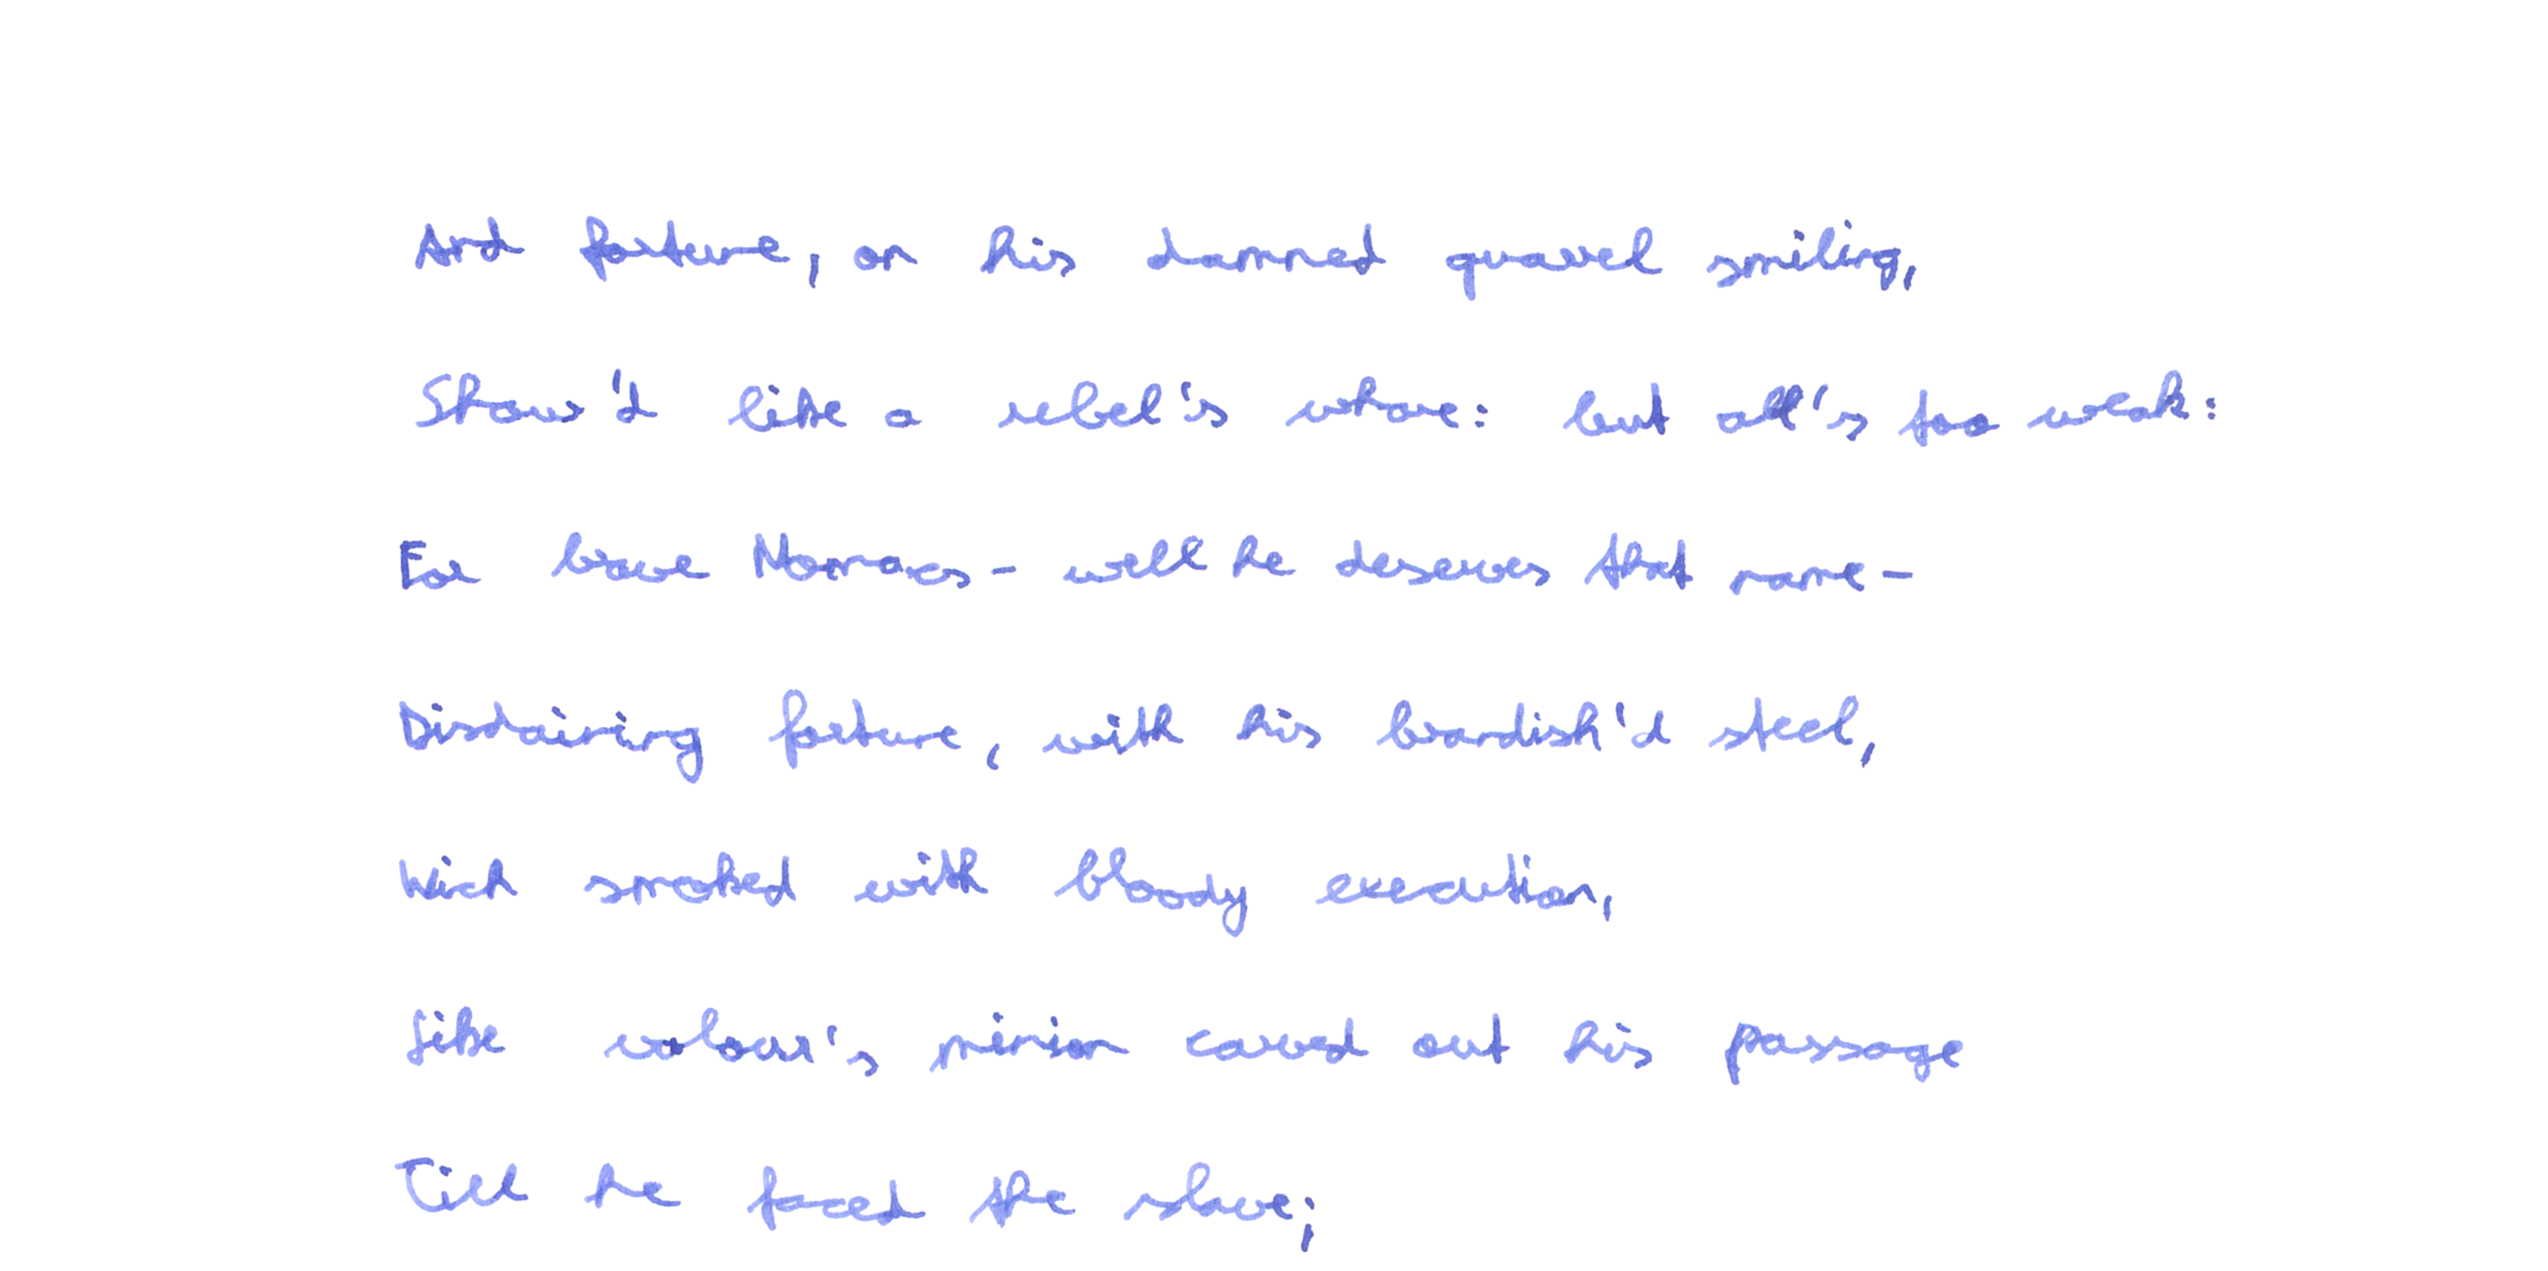 And fortune, on his damned quarrel smiling,
Show'd like a rebel's whore: but all's too weak:
For brave Nomaces - well he deserves that name -
Disdaining fortune, with his brandish'd steel,
Wich smoked with bloody execution,
Like valour's minion carved out his passage
Till he faced the slave;